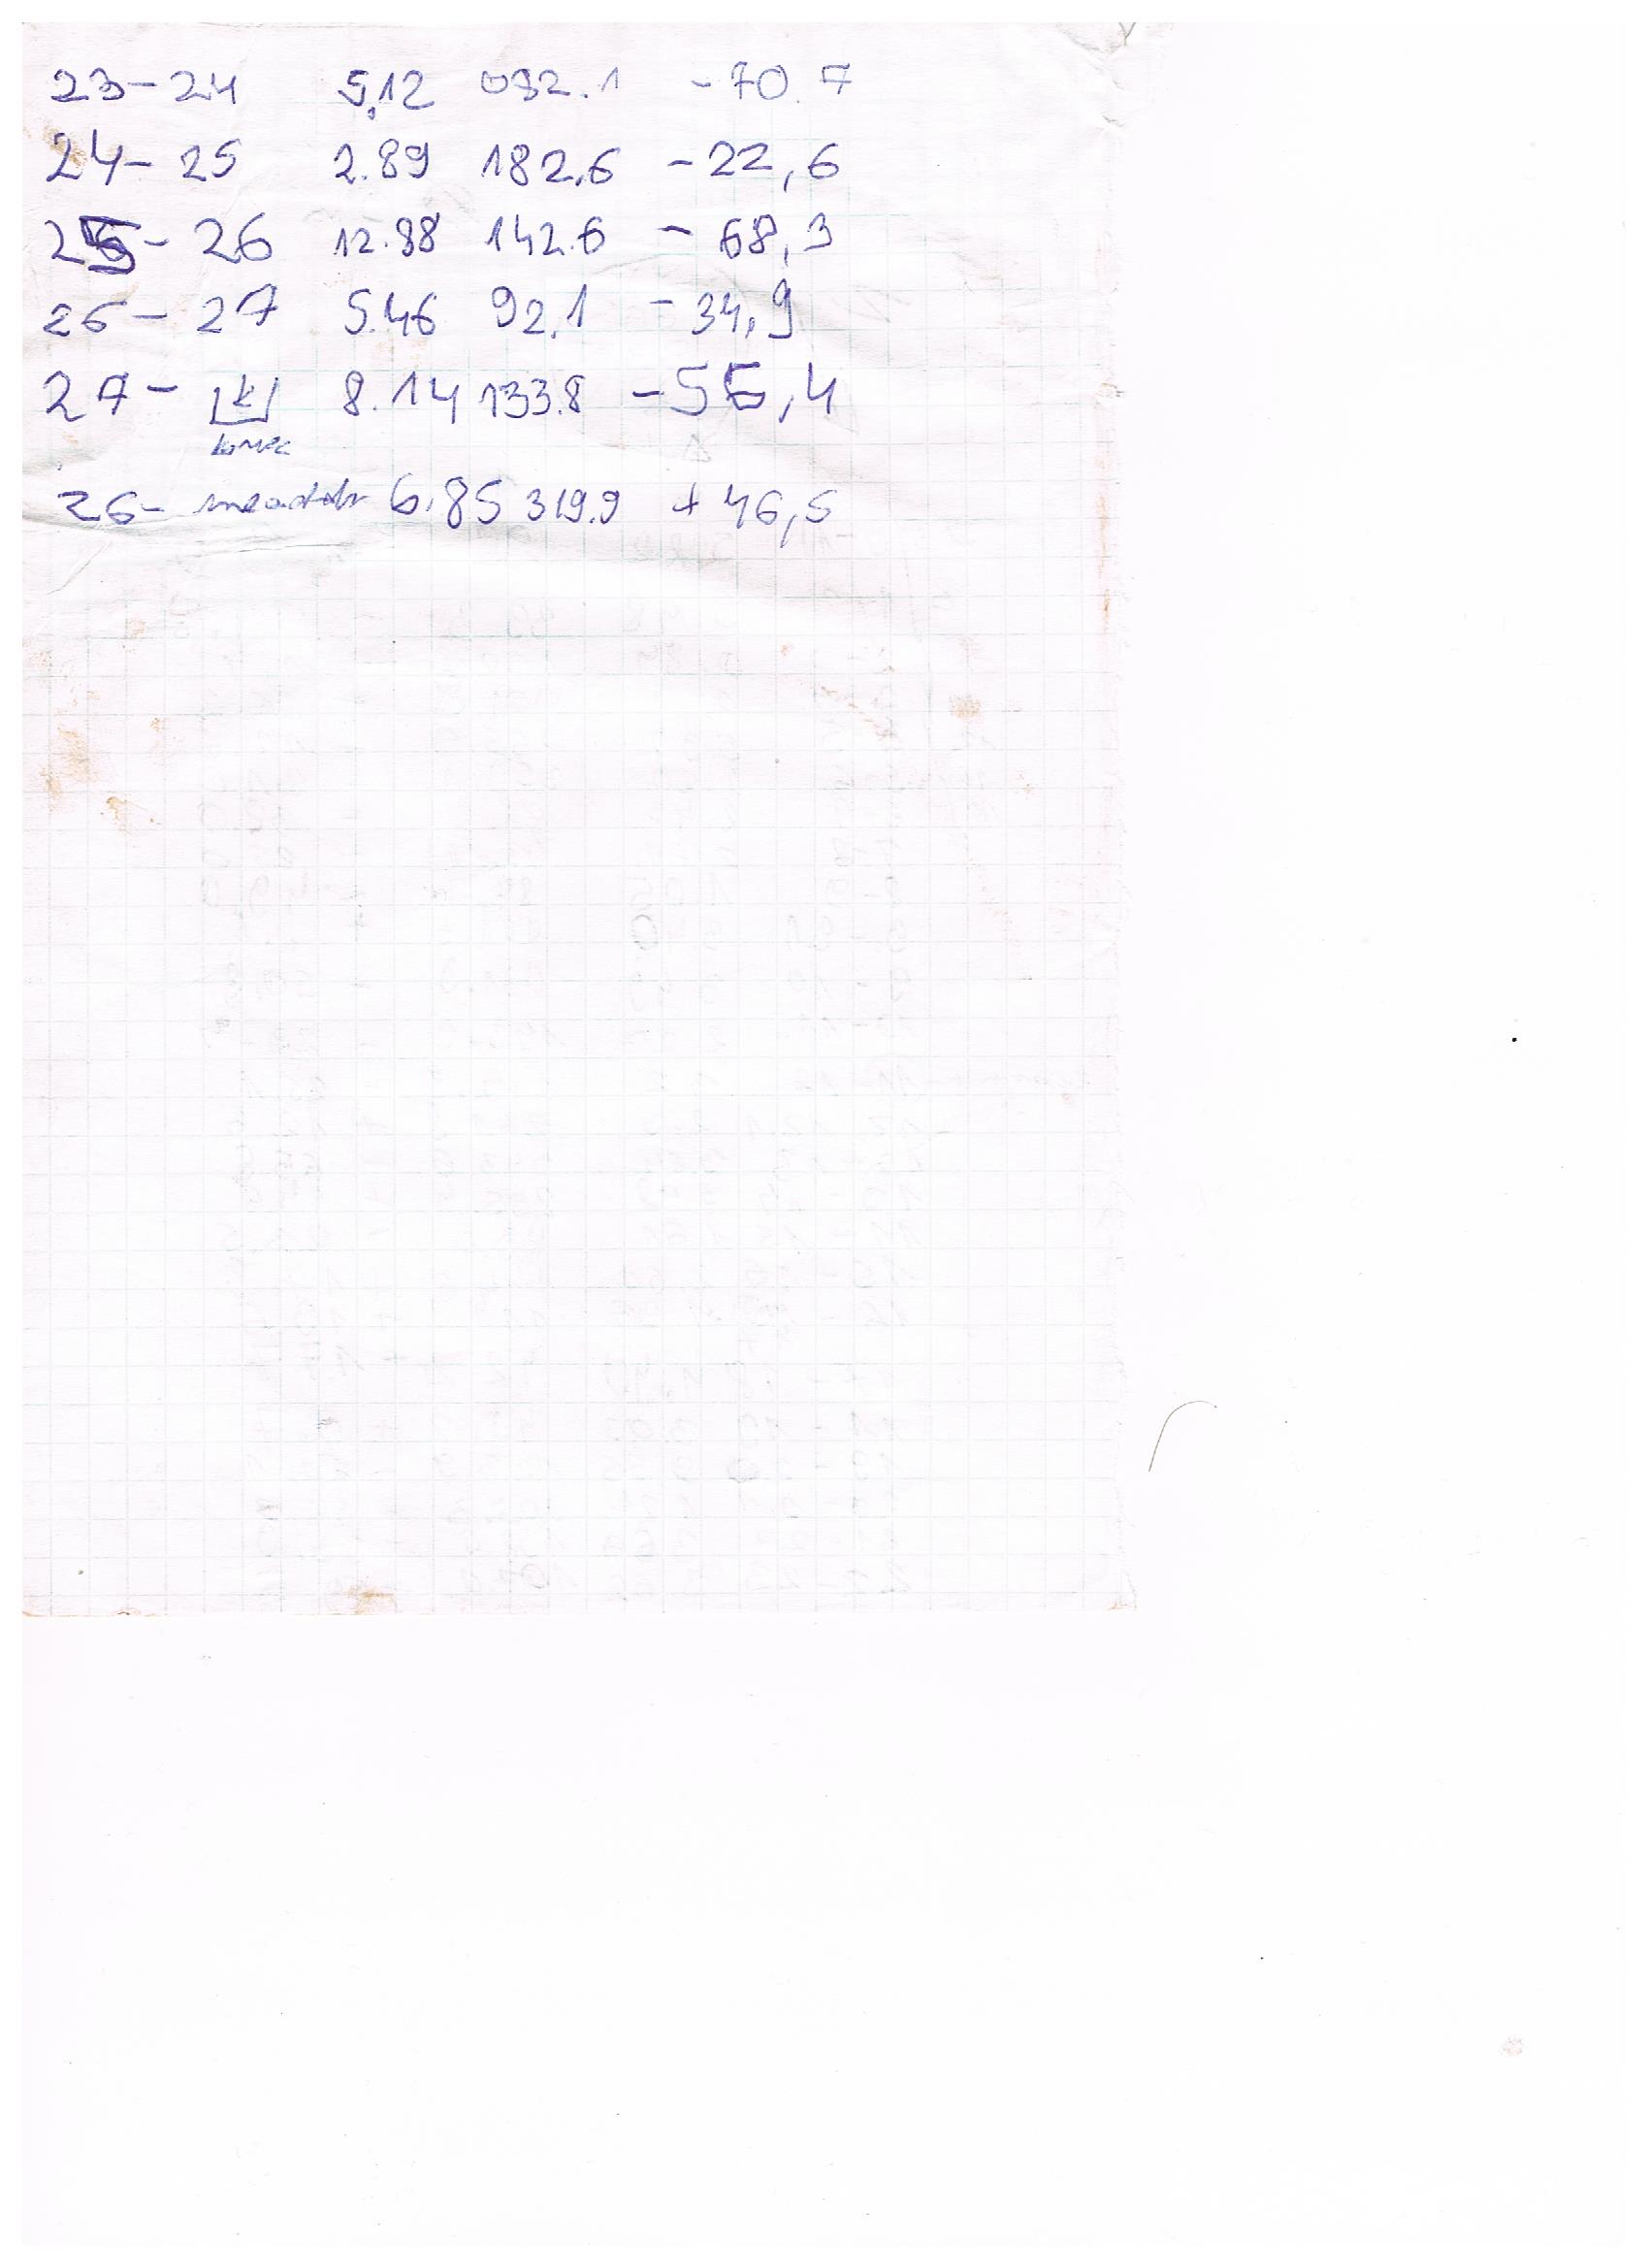 23 - 24 5,12 032.1 - 70.7
24 - 25 2.89 182.6 - 22,6
25 - 26 12.98 142.6 - 68,3
26 - 27 5.46 92.1 - 34,9
27 - K 8.14 133.8 - 55,4
26 - 6.85 319.9 + 46,5